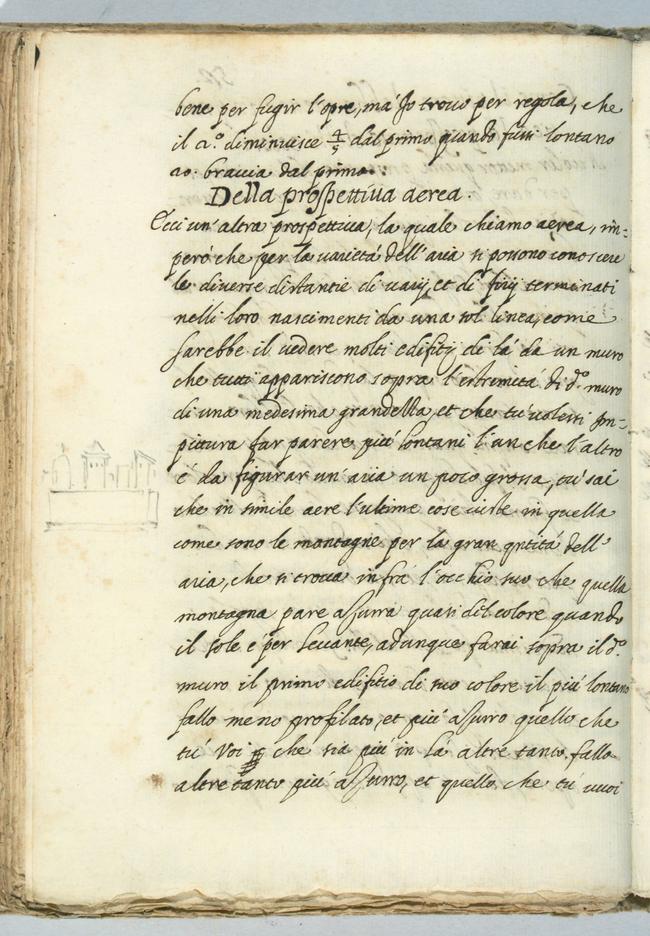 bene per fugir l'opre, ma Jo trovo per regola, che
il 2.º diminuisce 4/5 dal primo quando fussi lontano
20. braccia dal primo.
Della prospettiva aerea.
Ecci un'altra prospettiva, la quale chiamo aerea, im-
però che per la varietà dell'aria si possono conoscere
le diverse distantie di varij et di finij terminati
nelli loro nascimenti da una sol linea, come
sarebbe il vedere molti edifitij di là da un muro
che tutti appariscono sopra l'estremità di d.º muro
di una medesima grandezza, et che tu volessi in-
pittura far parere più lontani l'un che l'altro
è da figurar un'aria un poco grossa, tu sai
che in simile aere l'ultime cose viste in quella
come sono le montagne per la gran qntità dell'
aria, che si trova infrà l'occhio tuo che quella
montagna pare azurra quasi del colore quando
il sole e per Levante, adunque farai sopra il d.º
muro il primo edifitio di suo colore il più lontano
fallo meno profilato, et più azurro quello che
tu Voi che sia più in là altre tanto, fallo
altre tanto più azurro, et quello che tu vuoi